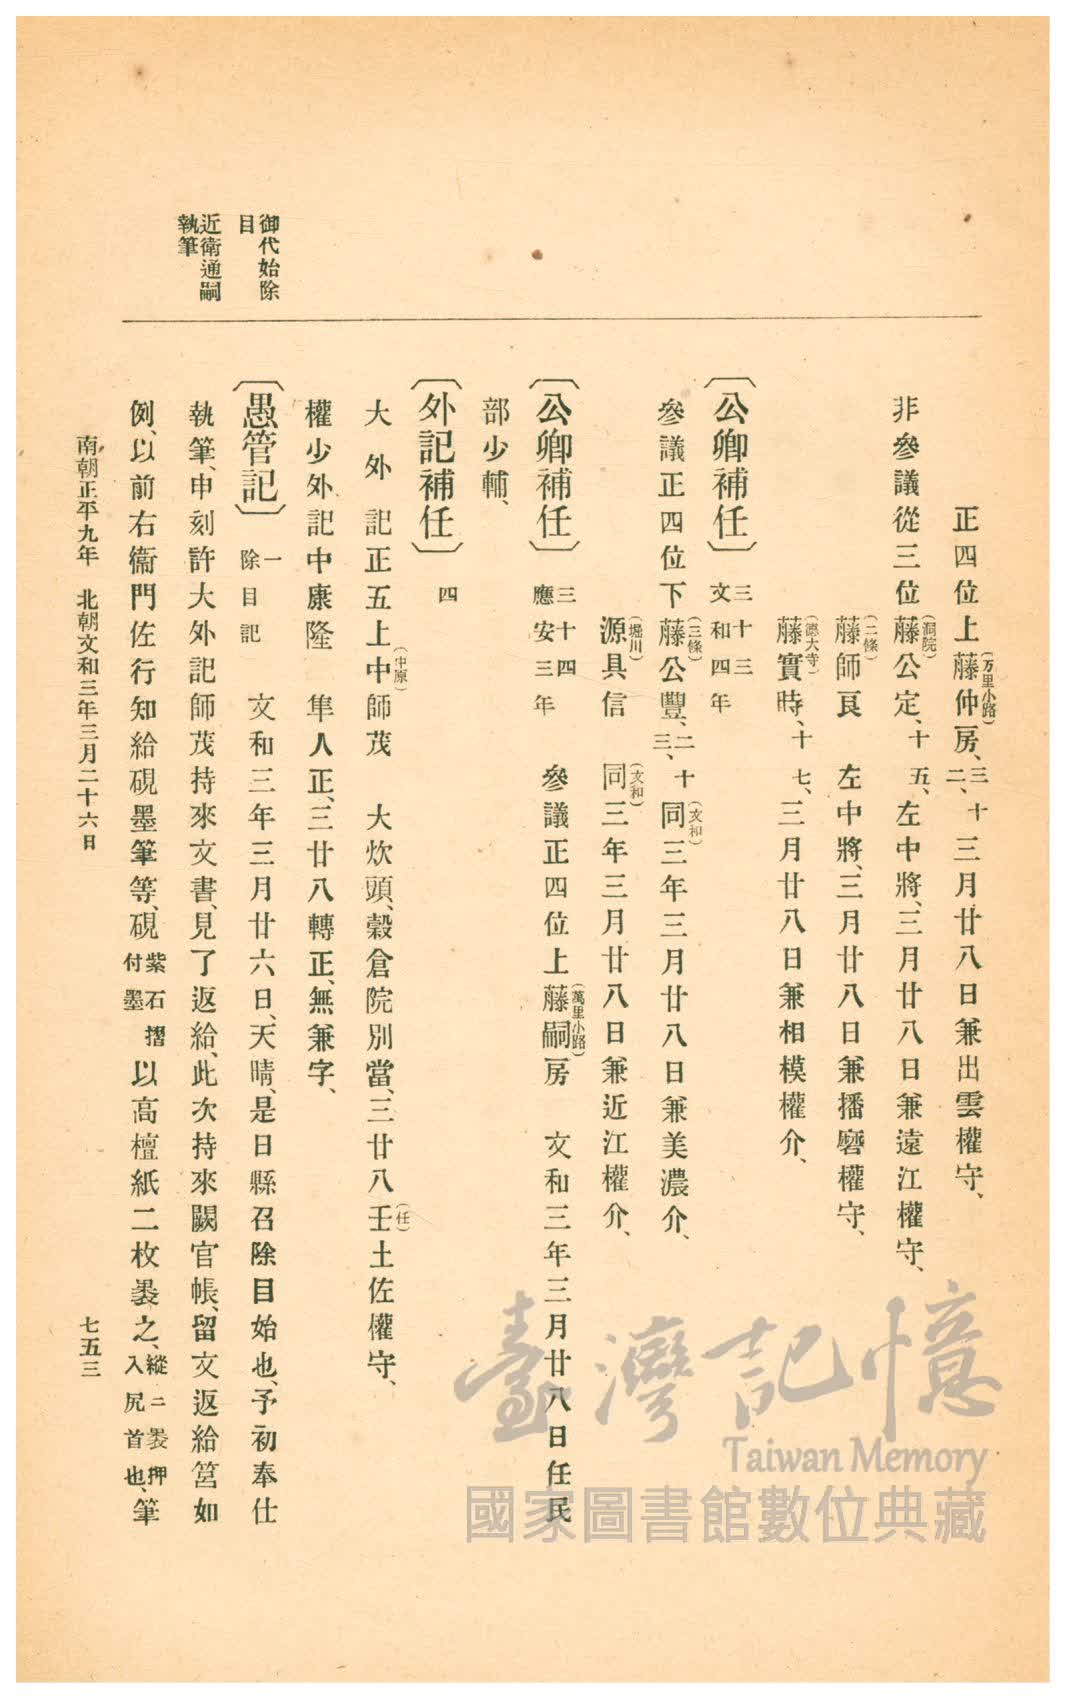 御代始除
目
近衛通嗣
執筆
正四位上藤仲房、(万里小路)三十二、三月廿八日兼出雲權守、
非參議從三位藤公定、(洞院)十五、左中將、三月廿八日兼遠江權守、
藤師良(二條)　左中將、三月廿八日兼播磨權守、
藤實時、(德大寺)十七、三月廿八日兼相模權介、
〔公卿補任〕三十三文和四年
參議正四位下藤公豐、(三條)二十三、同(文和)三年三月廿八日兼美濃介、
源具信(堀川)　同(文和)三年三月廿八日兼近江權介、
〔公卿補任〕三十四應安三年　參議正四位上藤嗣房(萬里小路)　文和三年三月廿八日任民
部少輔、
〔外記補任〕四
大外記正五上中師茂(中原)　大炊頭、穀倉院別當、三廿八壬(任)土佐權守、
權少外記中康隆　隼人正、三廿八轉正、無兼字、
〔愚管記〕一除目記　文和三年三月廿六日、天晴、是日縣召除目始也、予初奉仕
執筆、申刻許大外記師茂持來文書、見了返給、此次持來闕官帳、留文返給筥如
例、以前右衞門佐行知給硯墨筆等、硯紫石摺付墨以高檀紙二枚裹之、縱ニ裹押入尻首也、筆
南朝正平九年　北朝文和三年三月二十六日
七五三
臺灣記憶
Taiwan Memory
國家圖書館數位典藏